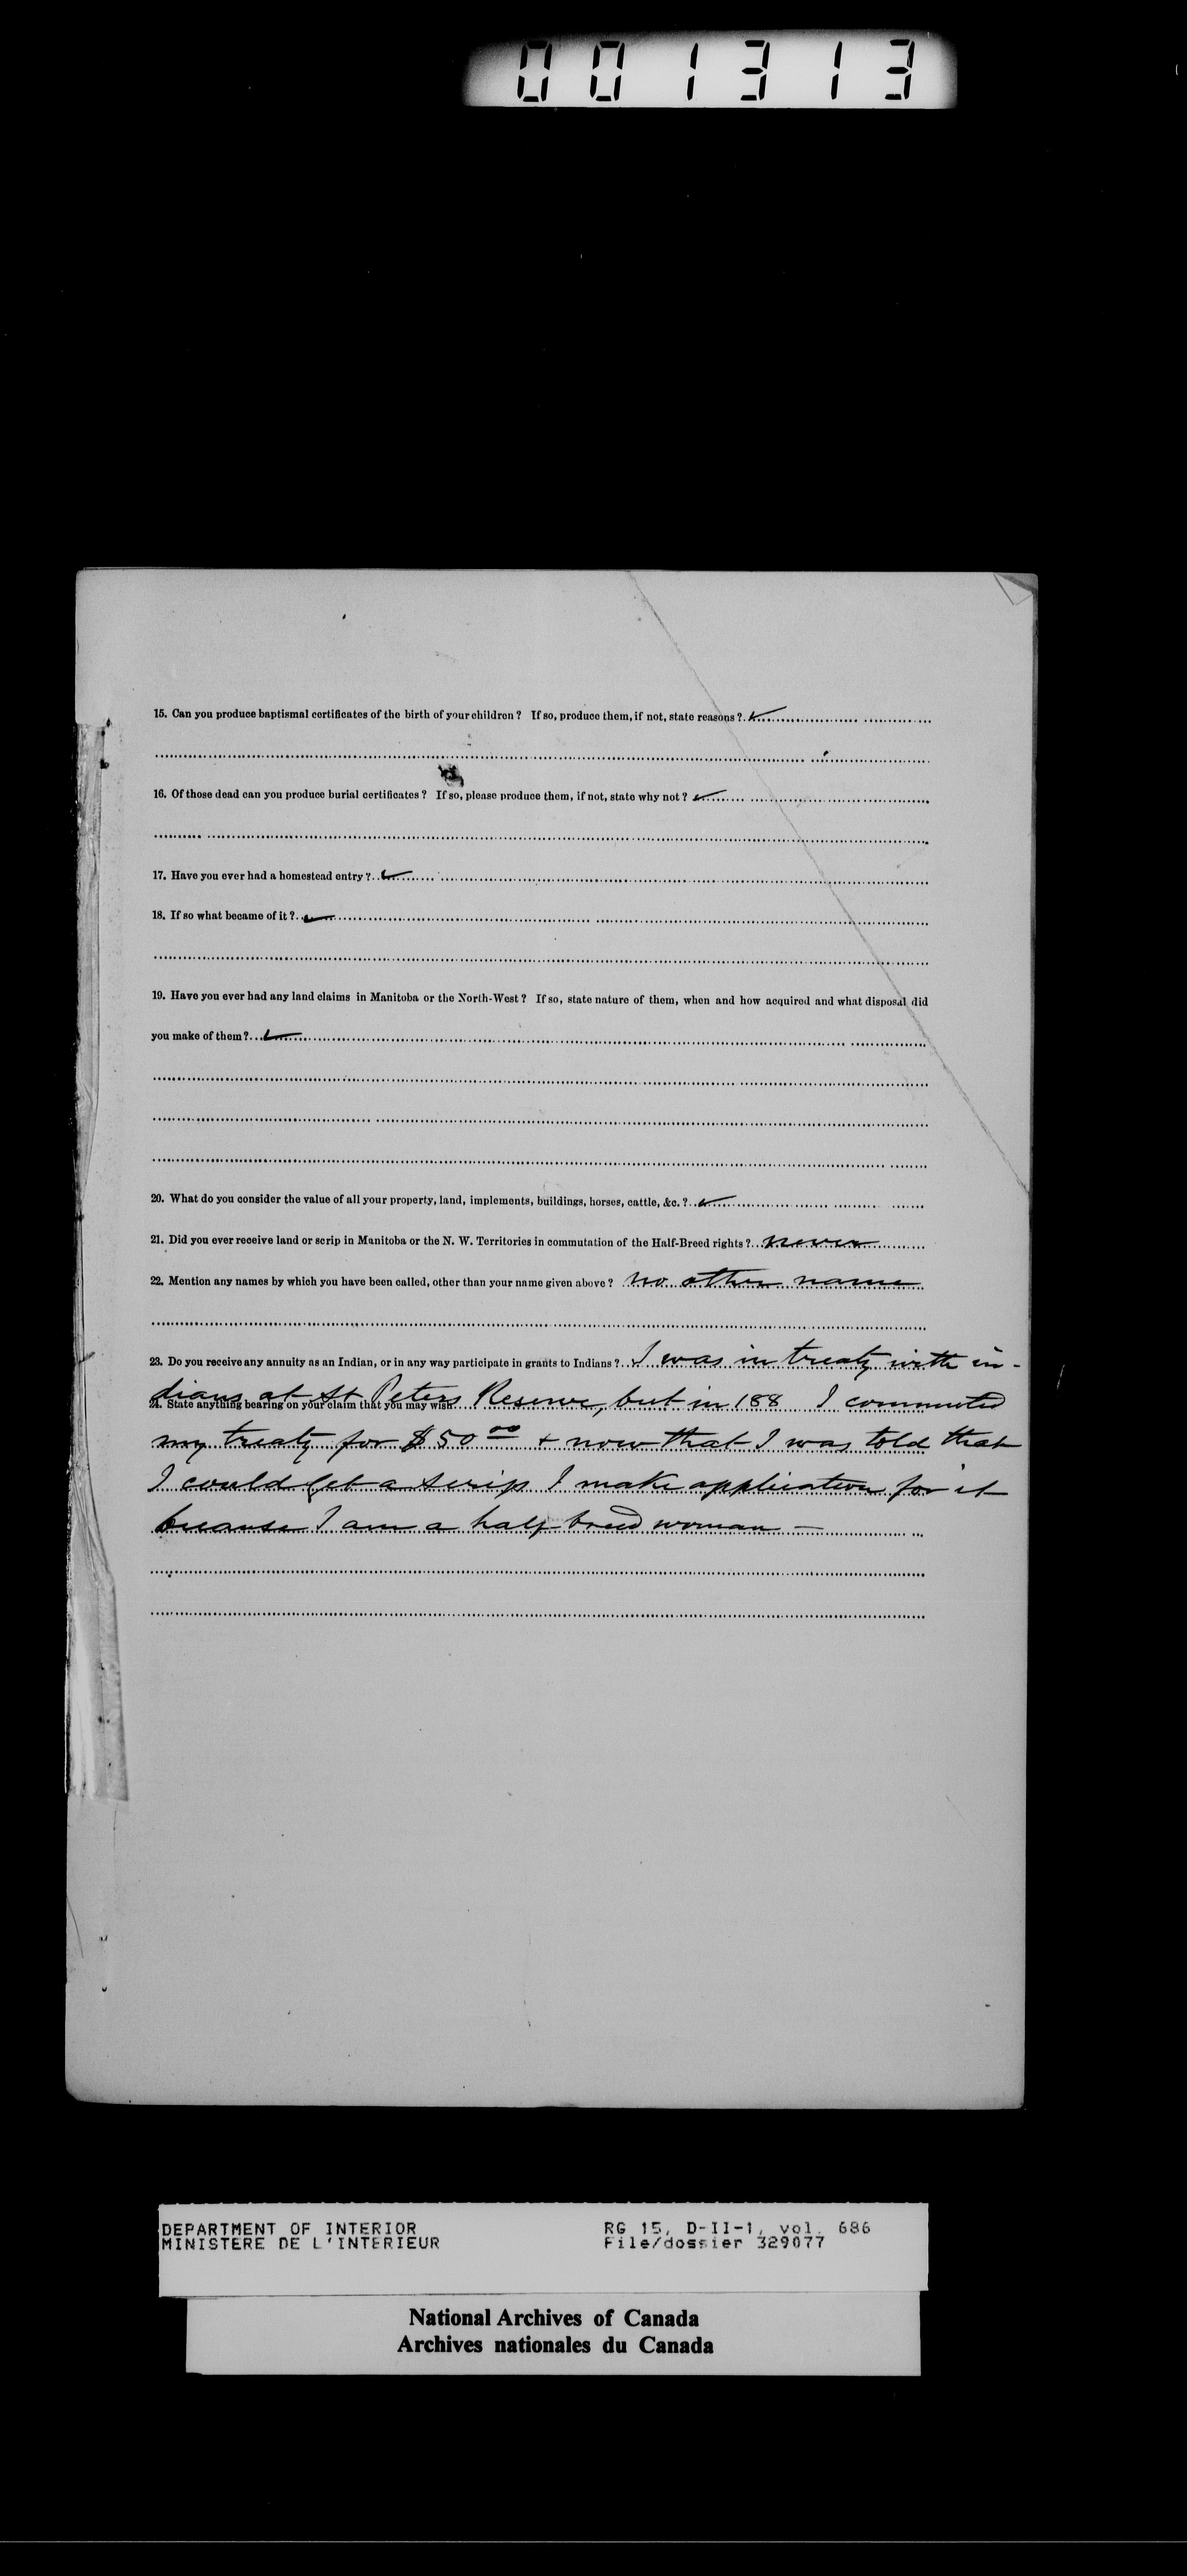 001313
15. Can you produce baptismal certificates of the birth of your children? If so, produce them, if not, state reasons?
16. Of those dead can you produce burial certificates? If so, please produce them, if not, state why not?
17. Have you ever had a homestead entry?
18. If so what became of it?
19. Have you ever had any land claims in Manitoba or the North-West? If so, state nature of them, when and how acquired and what disposal did
you make of them?
20. What do you consider the value of all your property, land, implements, buildings, horses, cattle, &c.?
21. Did you ever receive land or scrip in Manitoba or the N. W. Territories in commutation of the Half-Breed rights? never
22. Mention any names by which you have been called, other than your name given above? No other name
23. Do you receive any annuity as an Indian, or in any way participate in grants to Indians? I was in treaty with in-
dians at St Peters Reserve, but in 188 I commuted
24. State anything bearing on your claim that you may wish
my treaty for $50 00 + now that I was told that
I could get a scrip I make application for it
because I am a half-breed woman —
DEPARTMENT OF INTERIOR
MINISTERE DE L'INTERIEUR
RG 15, D-II-1, vol. 686
File/dossier 329077
National Archives of Canada
Archives nationales du Canada